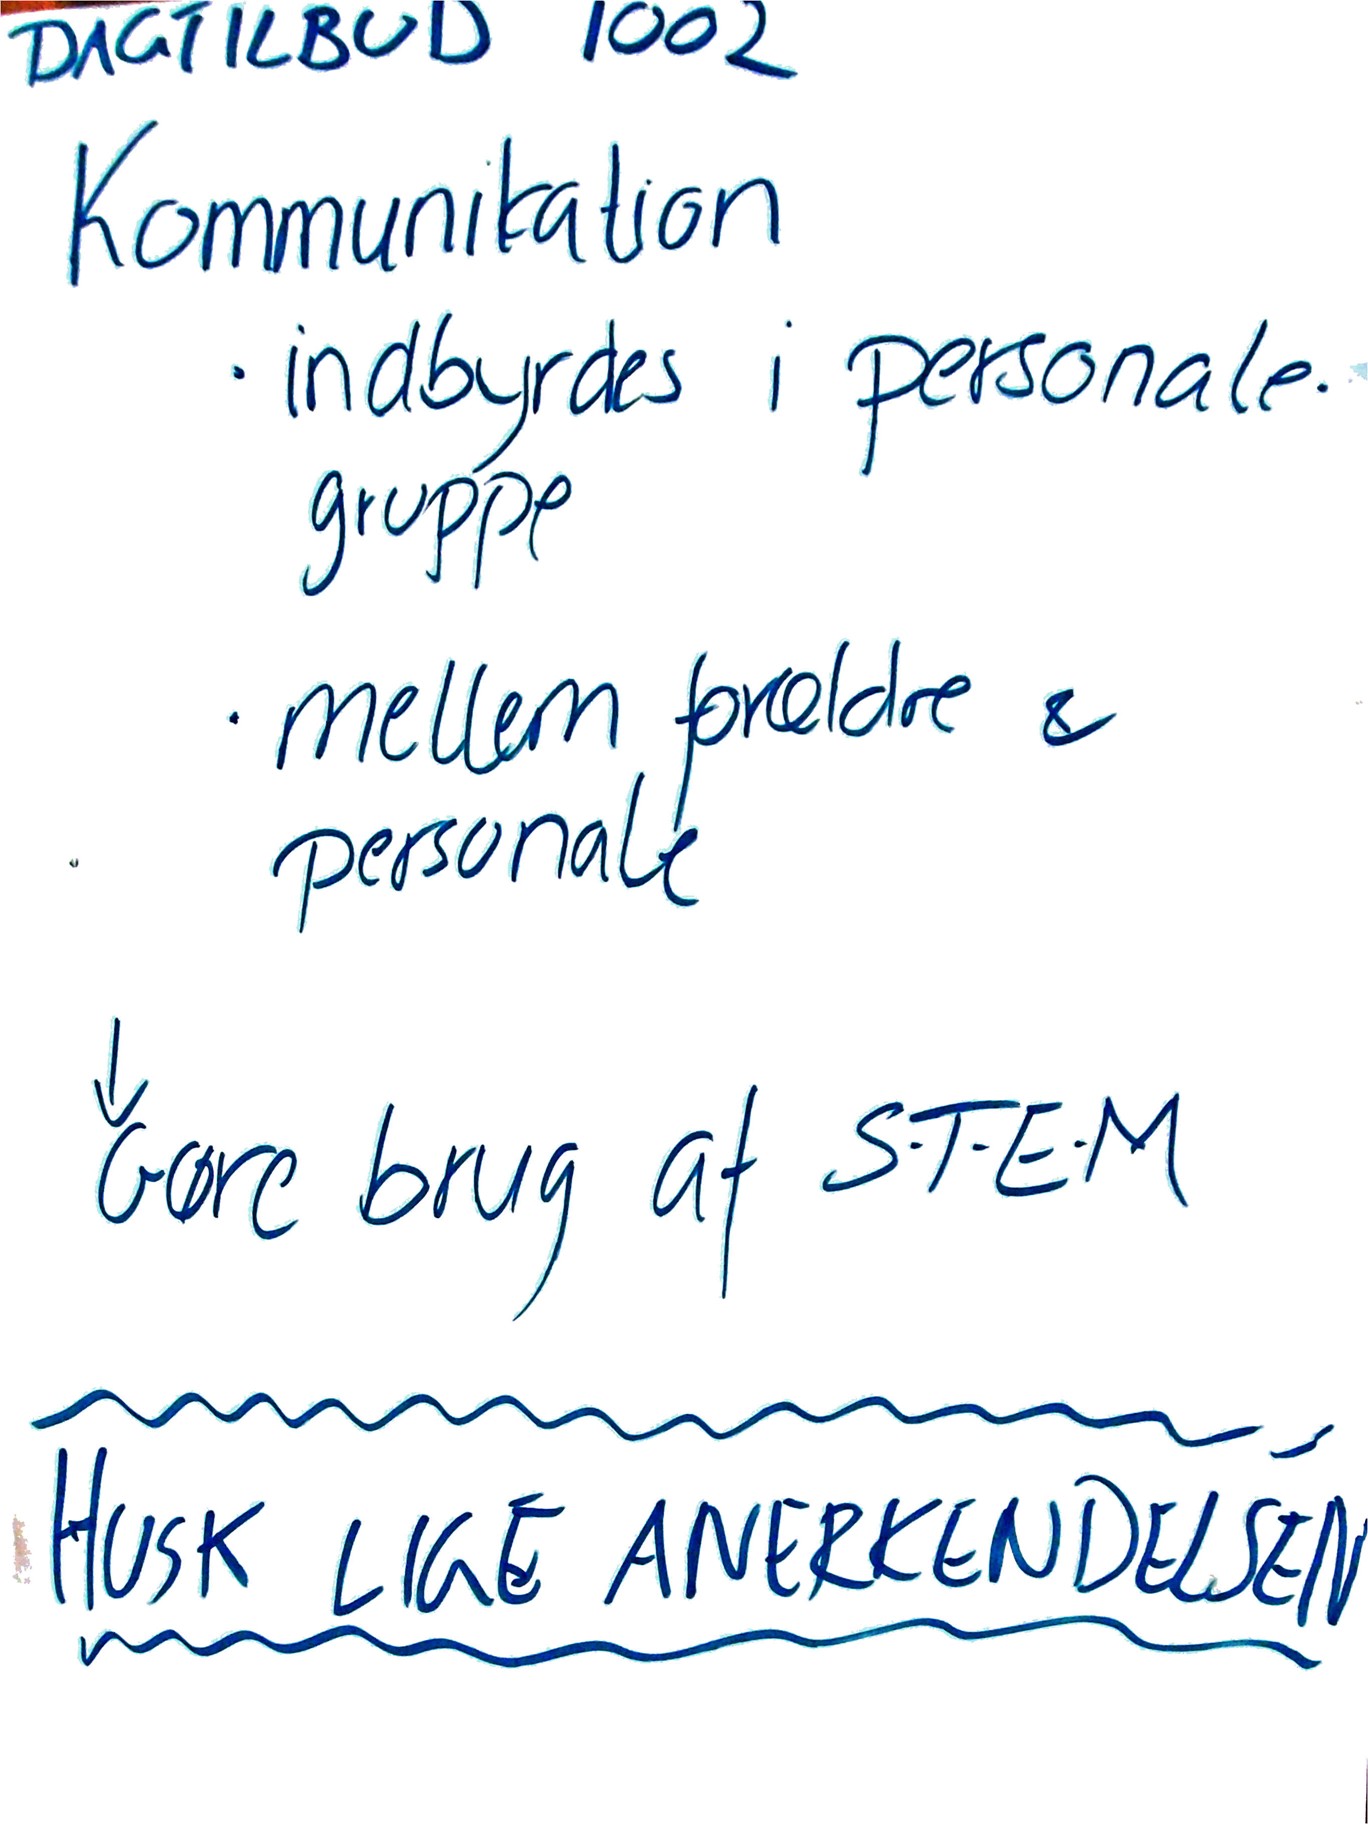 DAGTILBUD 1002
Kommunikation
· indbyrdes i personale-
gruppe
· mellem forældre &
personale
↓
Gøre brug af S.T.E.M
HUSK LIGE ANERKENDELSEN